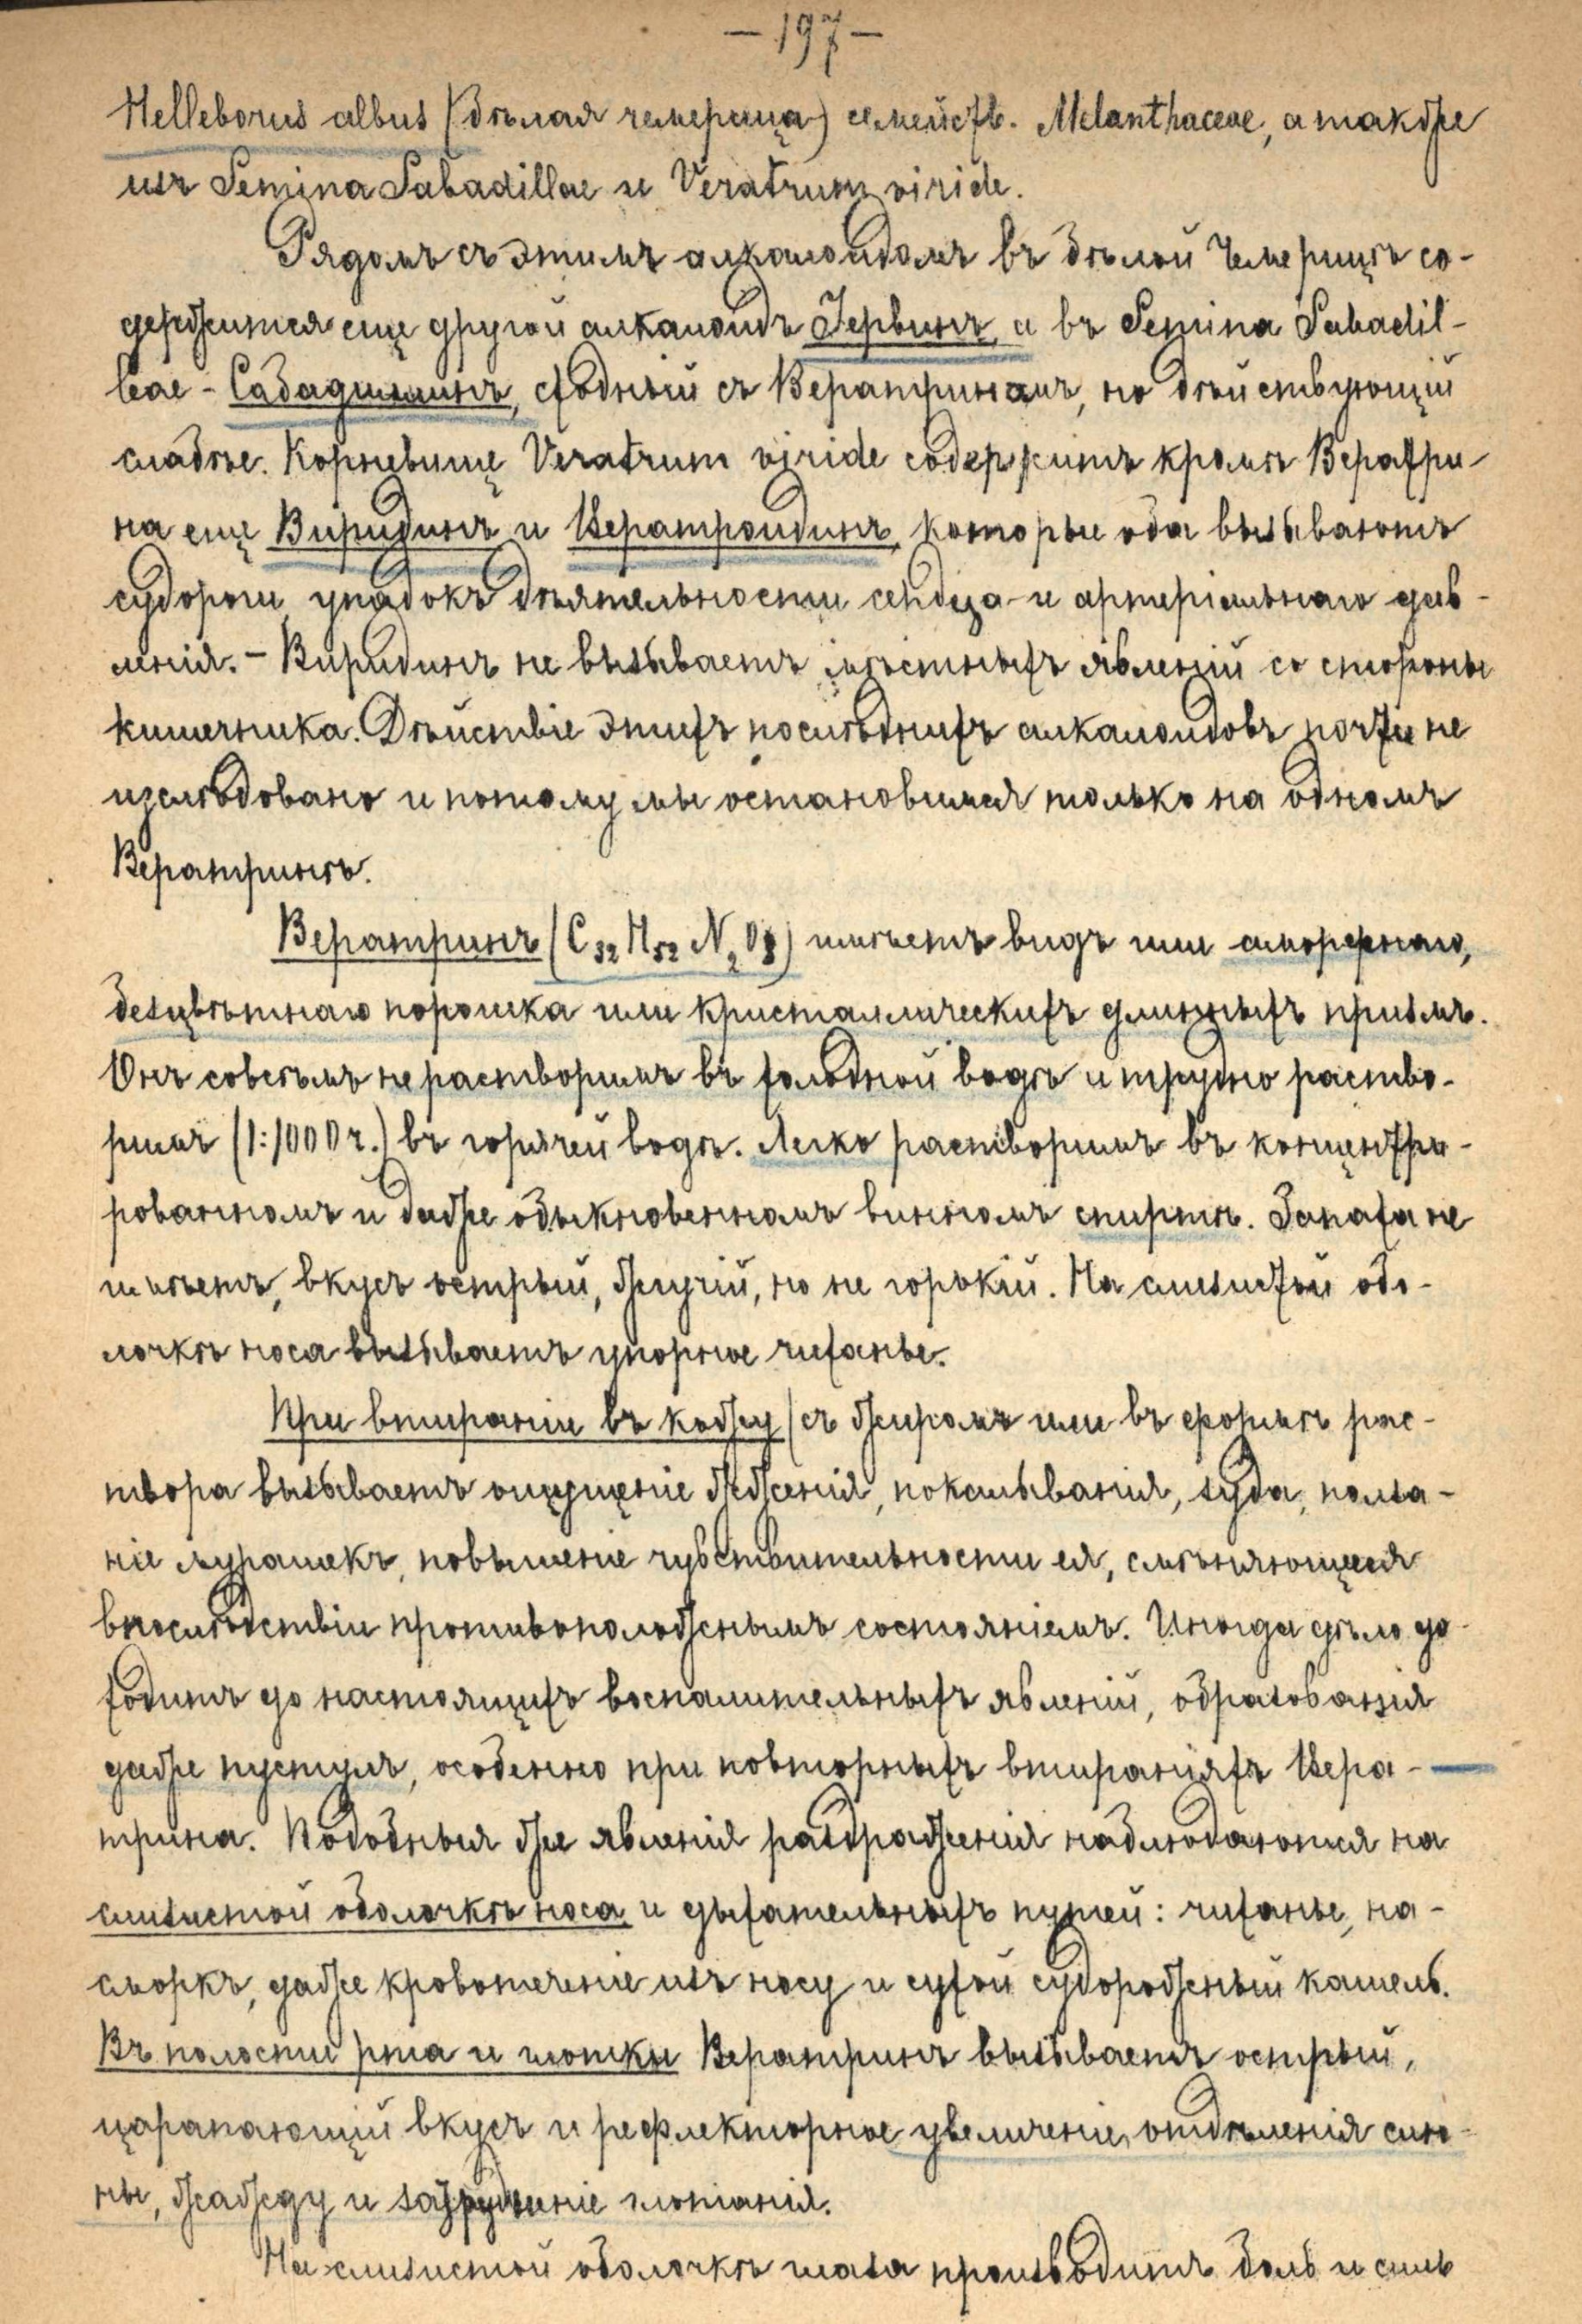 — 197 —
Helleborus albus (бѣлая чемерица) семейств. Melanthaceae, а также
изъ Semina Sabadillae и Veratrum viride.
Рядомъ съ этимъ алкалоидомъ въ бѣлой Чемерицѣ со-
держится еще другой алкалоидъ Іервинъ, а въ Semina Sabadil-
leae - Сабадиллинъ, сходный съ Вератриномъ, но дѣйствующій
слабѣе. Корневище Veratrum viride содержитъ кромѣ Вератри-
на еще Виридинъ и Вератроидинъ, которые оба вызываютъ
судороги, упадокъ дѣятельности сердца и артеріальнаго дав-
ленія. - Виридинъ не вызываетъ мѣстныхъ явленій со стороны
кишечника. Дѣйствіе этихъ послѣднихъ алкалоидовъ почти не
изслѣдовано и потому мы остановимся только на одномъ
Вератринѣ.
Вератринъ (C32 H52 N2 O8) имѣетъ видъ или аморфнаго,
безцвѣтнаго порошка или кристаллическихъ длинныхъ призмъ.
Онъ совсѣмъ нерастворимъ въ холодной водѣ и трудно раство-
римъ (1:1000 ч.) въ горячей водѣ. Легко растворимъ въ концентри-
рованномъ и даже обыкновенномъ винномъ спиртѣ. Запаха не
имѣетъ, вкусъ острый, жгучій, но не горькій. На слизистой обо-
лочкѣ носа вызываетъ упорное чиханье.
При втираніи въ кожу (съ жиромъ или въ формѣ рас-
твора вызываетъ ощущеніе жженія, покалыванія, зуда, полза-
ніе мурашекъ, повышеніе чувствительности ея, смѣняющееся
впослѣдствіи противоположнымъ состояніемъ. Иногда дѣло до-
ходитъ до настоящихъ воспалительныхъ явленій, образованія
даже пустулъ, особенно при повторныхъ втираніяхъ Вера-
трина. Подобныя же явленія раздраженія наблюдаются на
слизистой оболочкѣ носа и дыхательныхъ путей: чиханье, на-
сморкъ, даже кровотеченіе изъ носу и сухой судорожный кашель.
Въ полости рта и глотки Вератринъ вызываетъ острый,
царапающій вкусъ и рефлекторное увеличеніе отдѣленія слю-
ны, жажду и затрудненіе глотанія.
На слизистой оболочкѣ глаза производитъ боль и силь